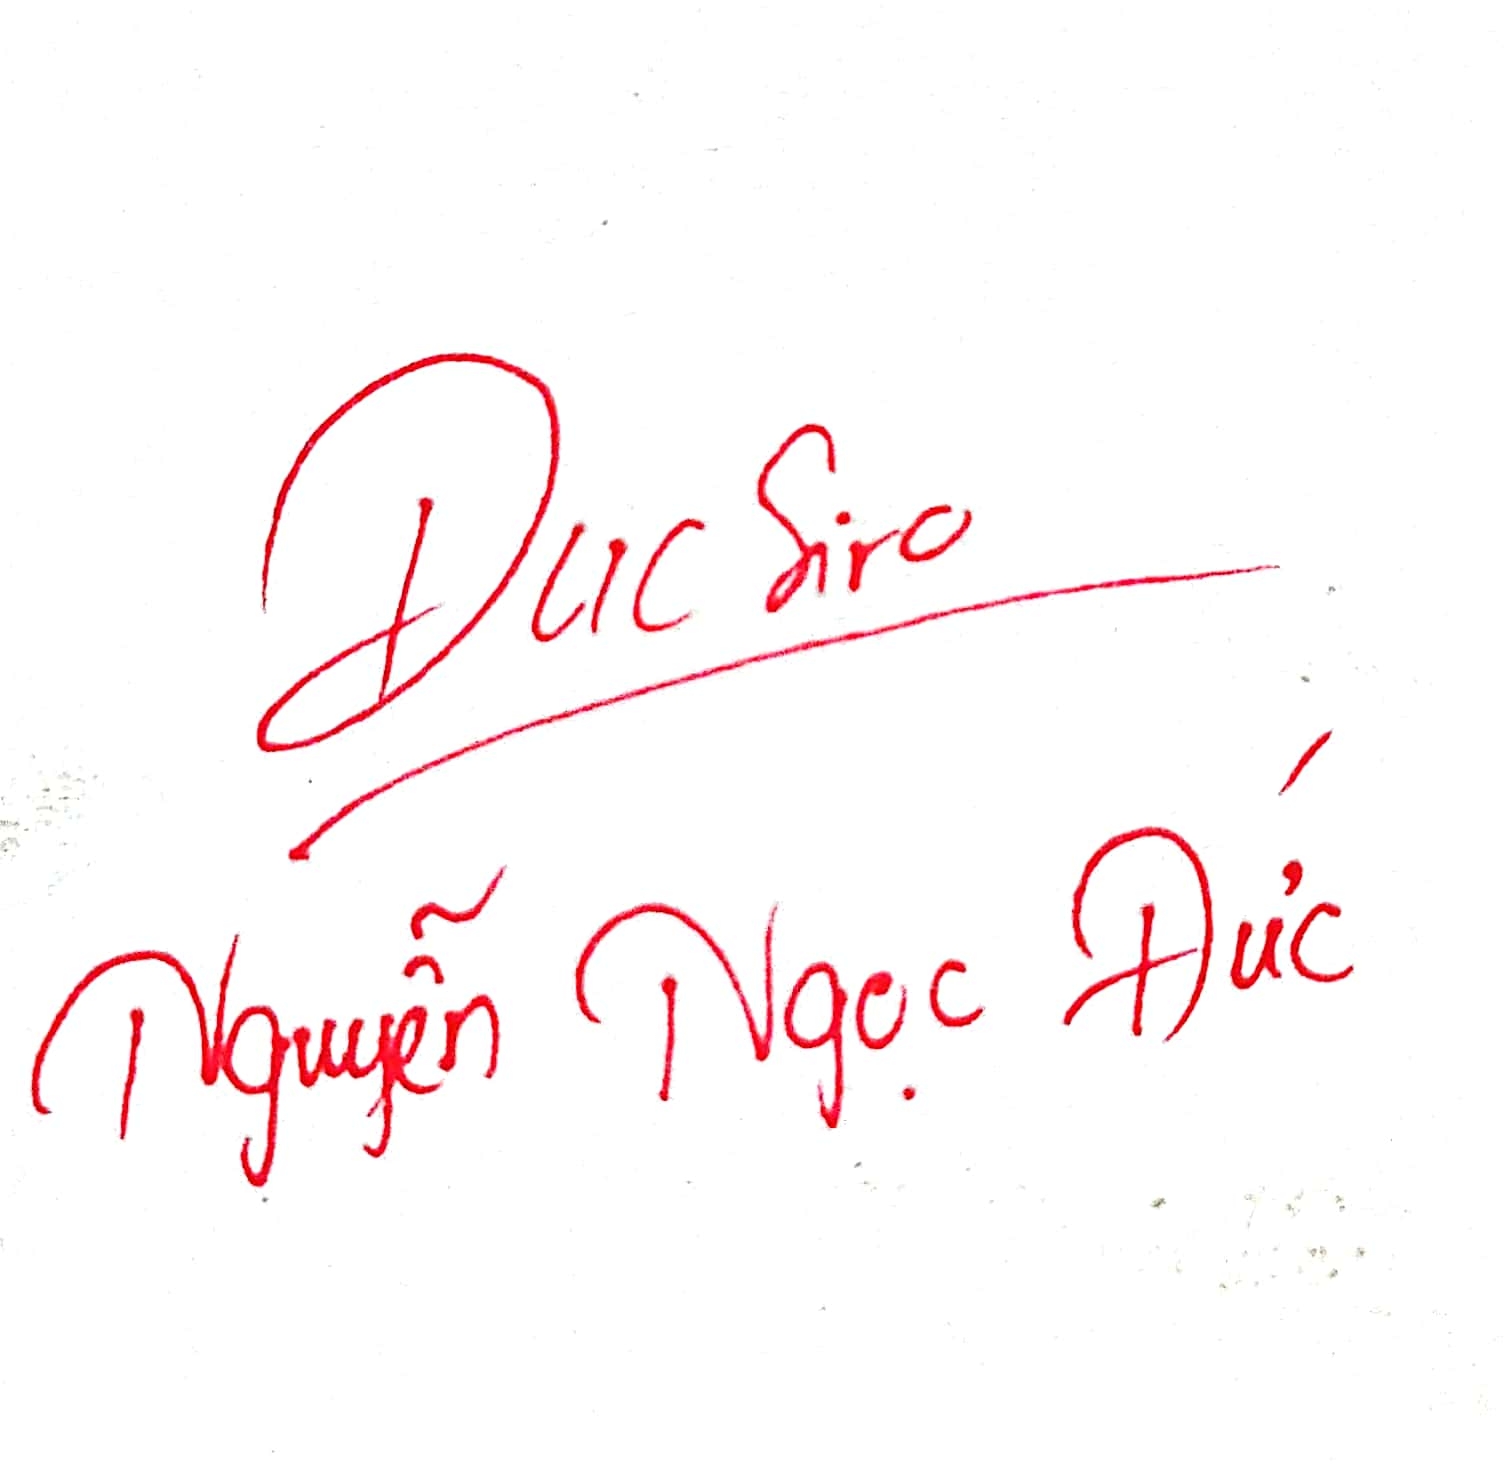 Đuc Siro
Nguyễn Ngọc Đức